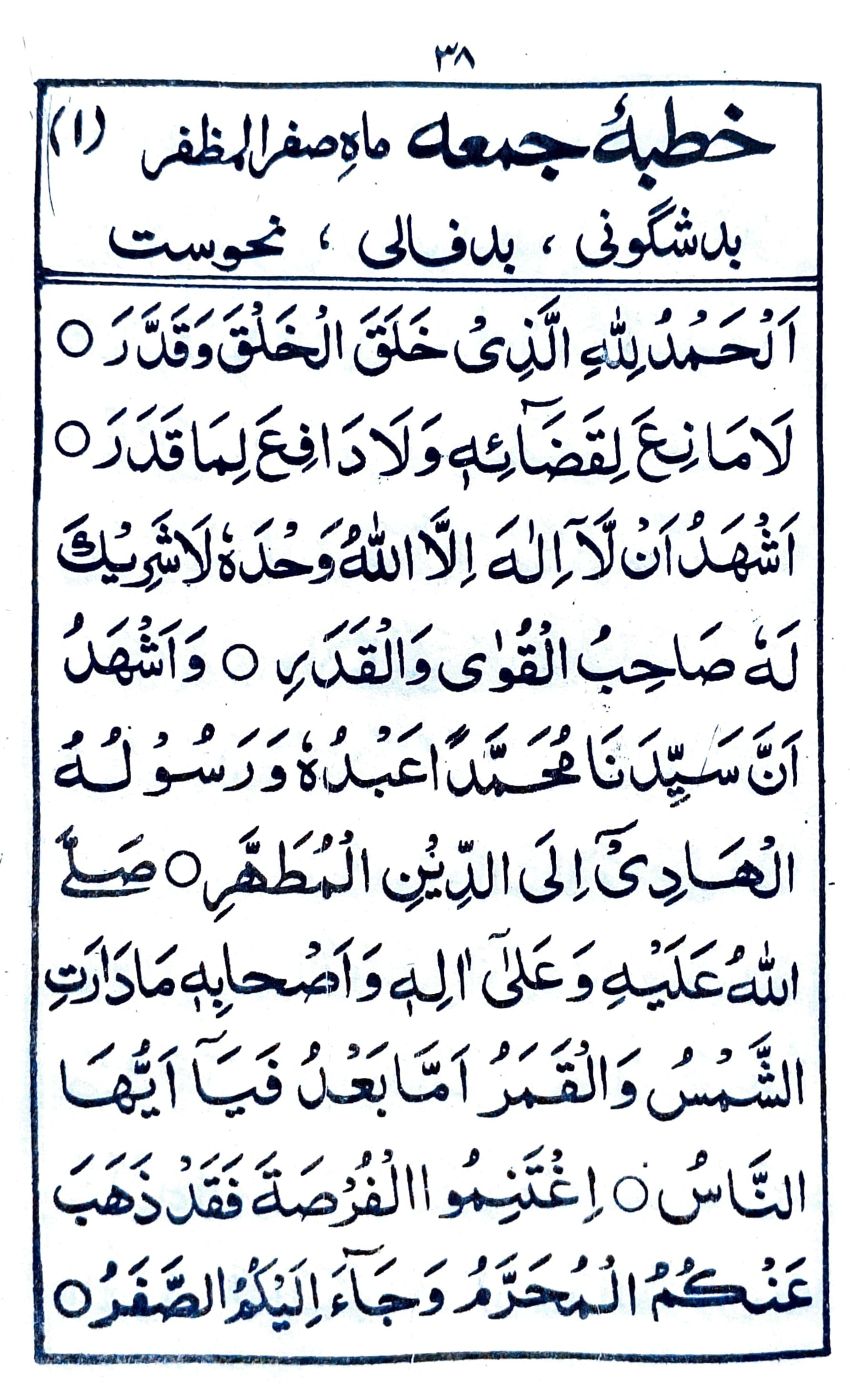 ٣٨
خطبۂ جمعہ ماہِ صفر المظفر (۱)
بدشگونی ، بدفالی ، نحوست
اَلْحَمْدُ لِلّٰهِ الَّذِیْ خَلَقَ الْخَلْقَ وَقَدَّرَ ○
لَا مَانِعَ لِقَضَآئِهٖ وَلَا دَافِعَ لِمَا قَدَرَ ○
اَشْهَدُ اَنْ لَّآ اِلٰهَ اِلَّا اللّٰهُ وَحْدَهٗ لَا شَرِیْكَ
لَهٗ صَاحِبُ الْقُوٰی وَالْقَدَرِ ○ وَاَشْهَدُ
اَنَّ سَیِّدَنَا مُحَمَّدًا عَبْدُهٗ وَرَسُوْلُهُ
الْهَادِیْٓ اِلَی الدِّیْنِ الْمُطَهَّرِ ○ صَلَّے
اللّٰهُ عَلَیْهِ وَعَلٰٓی اٰلِهٖ وَاَصْحَابِهٖ مَا دَارَتِ
الشَّمْسُ وَالْقَمَرُ اَمَّا بَعْدُ فَیَآ اَیُّهَا
النَّاسُ ○ اِغْتَنِمُوا الْفُرْصَةَ فَقَدْ ذَهَبَ
عَنْكُمُ الْمُحَرَّمُ وَجَآءَ اِلَیْكُمُ الصَّفَرُ ○